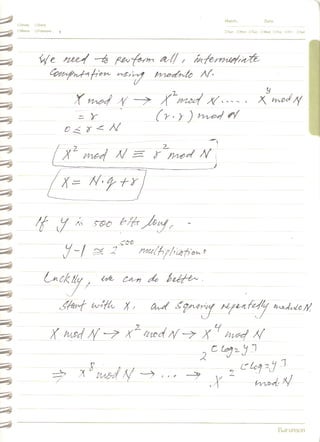 We need to perform all, intermediate
Computation using modulo N.
X mod N → X² mod N ..... X^y mod N
= r (r.r) mod N
0 ≤ r < N
X² mod N ≡ r² mod N
X = N.q + r
If y is 500 bits long, -
y-1 ≅ 2^500 multiplications
Luckily, we can do better.
Start with X, and squaring repeatedly modulo N
X mod N → X² mod N → X⁴ mod N
2^[log₂y]
⇒ X⁸ mod N → ... → X^2^[log₂y] mod N
Barunson